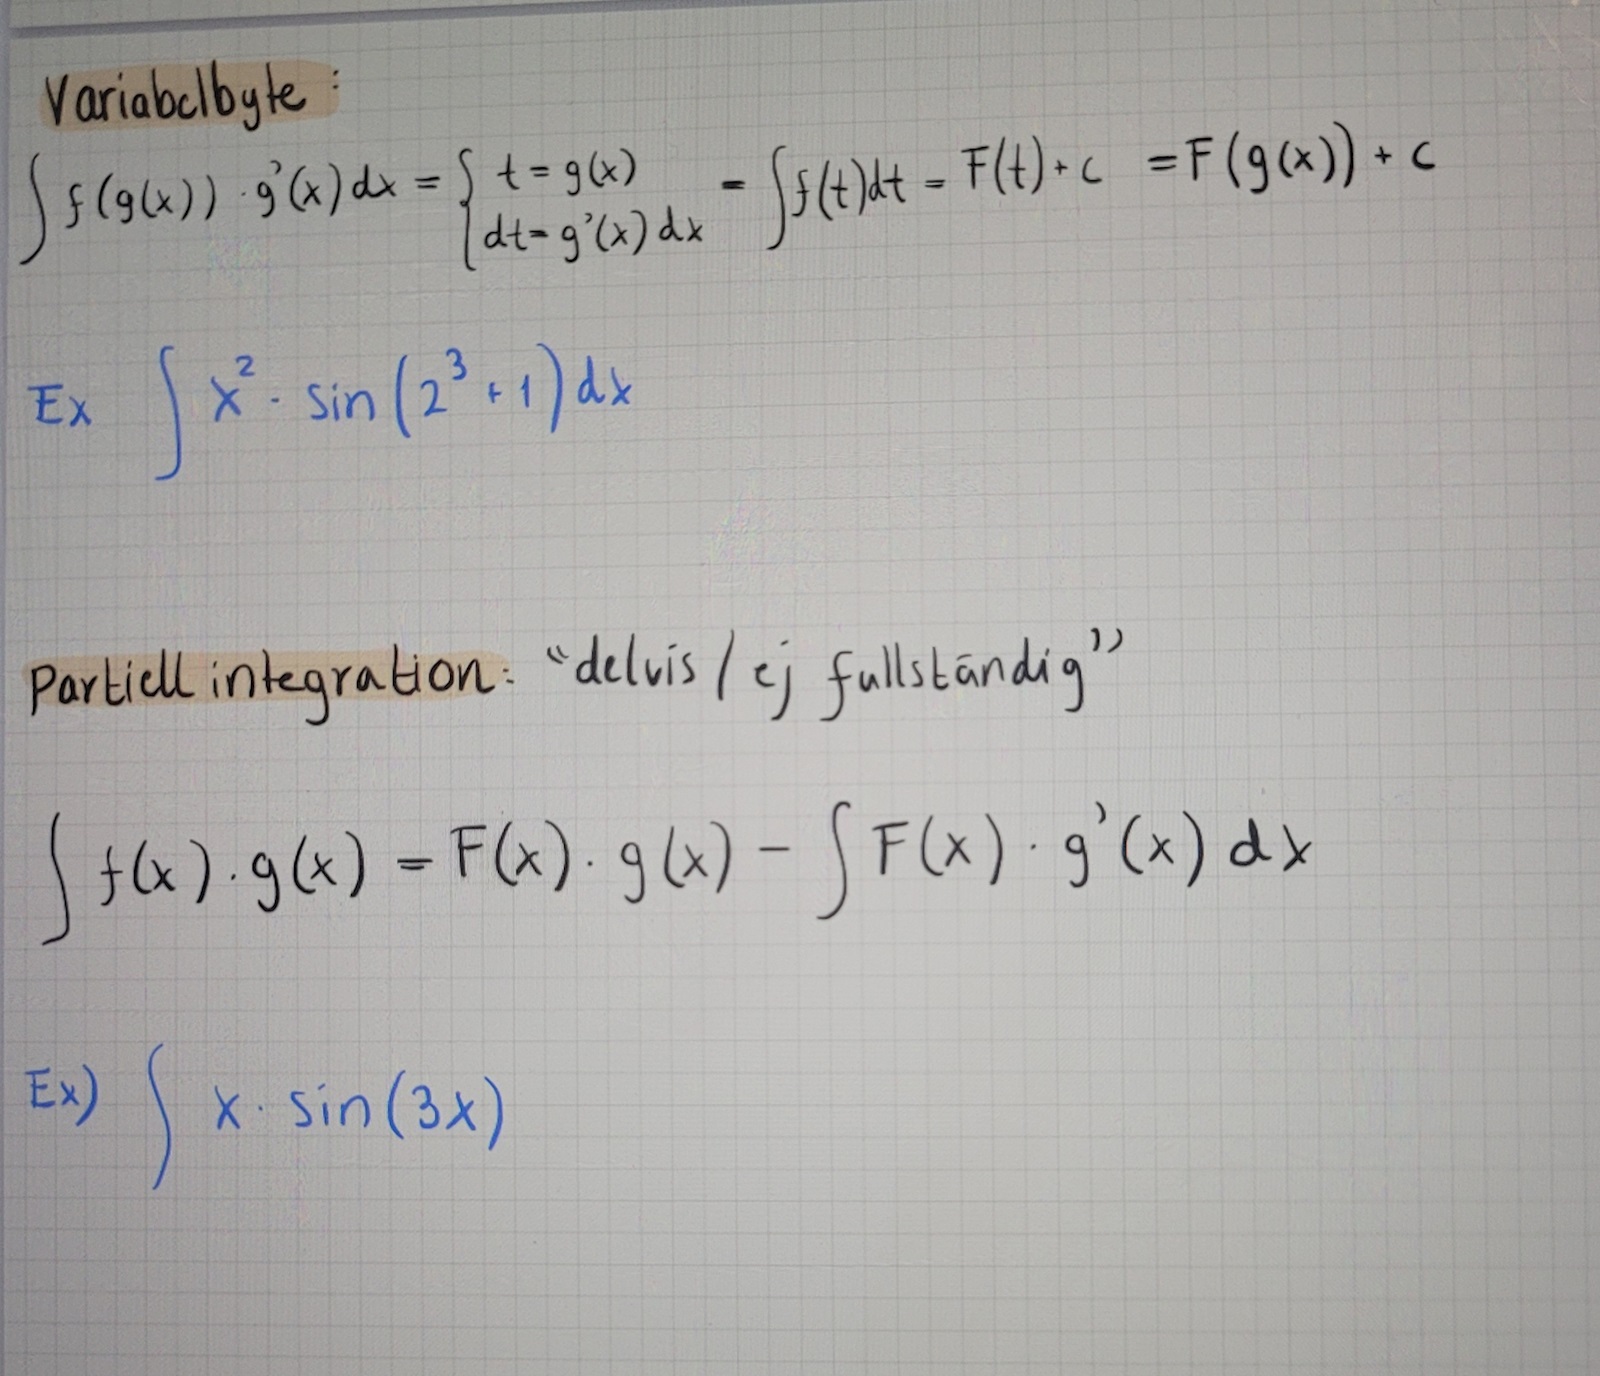 Variabelbyte:
∫ f(g(x)) · g'(x) dx = { t = g(x) = ∫ f(t)dt = F(t) + c = F(g(x)) + c
dt = g'(x) dx
Ex ∫ x² · sin(2³ + 1) dx
Partiell integration: “delvis / ej fullständig”
∫ f(x) · g(x) = F(x) · g(x) − ∫ F(x) · g'(x) dx
Ex) ∫ x · sin(3x)